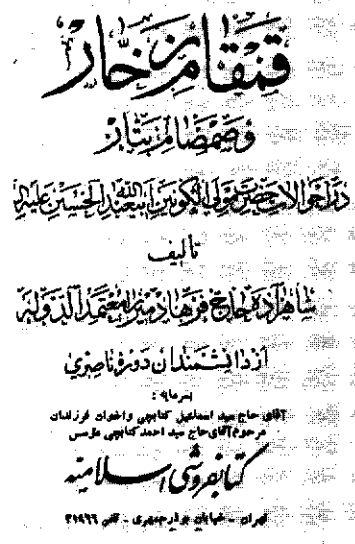 قمقام زخار
و صمصام بتار
در احوالات حضرت مولی الکونین ابیعبدالله الحسین علیه
تألیف
شاهزاده حاج فرهاد میرزا معتمدالدوله
از دانشمندان دوره ناصری
بسرمایه :
آقای حاج سید اسمعیل کتابچی و اخوان فرزندان
مرحوم آقای حاج سید احمد کتابچی
کتابفروشی اسلامیه
تهران - خیابان بوذرجمهری - تلفن ۲۱۹۶۶